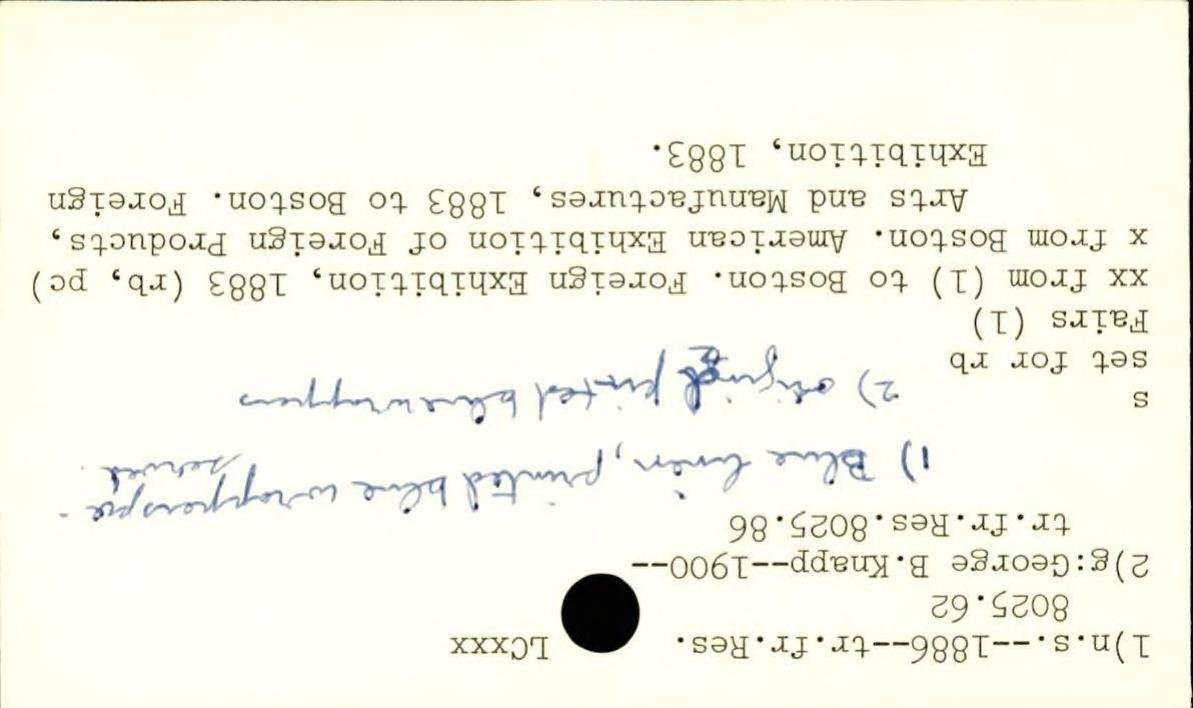 1)n.s.--1886--tr.fr.Res. LCxxx
8025.62
2)g:George B.Knapp--1900--
tr.fr.Res.8025.86
1) Blue linen, printed blue wrappers pre-
served.
2) original printed blue wrappers
s
set for rb
Fairs (1)
xx from (1) to Boston. Foreign Exhibition, 1883 (rb, pc)
x from Boston. American Exhibition of Foreign Products,
Arts and Manufactures, 1883 to Boston. Foreign
Exhibition, 1883.